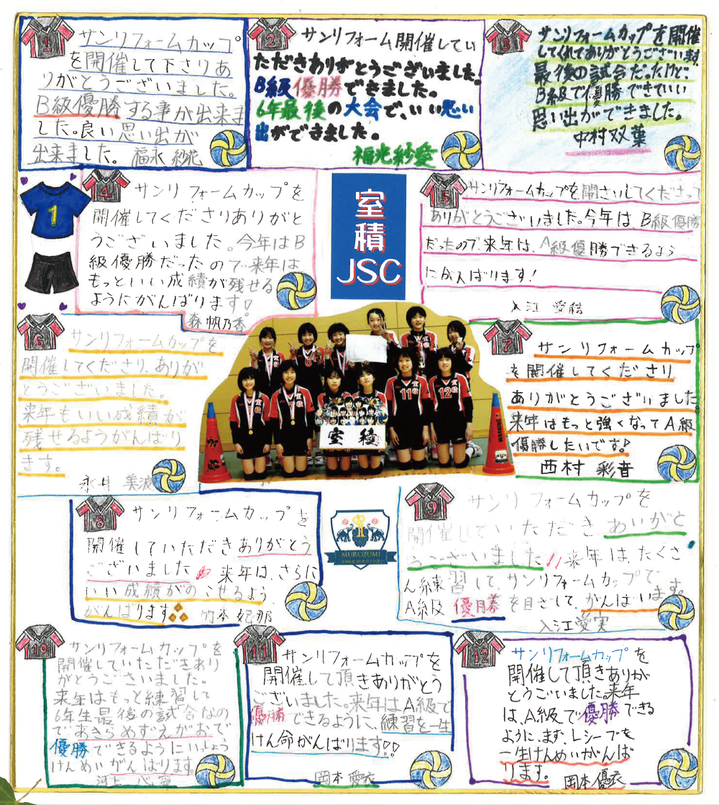 1
サンリフォームカップ
を開催して下さりあ
りがとうございました。
B級優勝する事が出来ま
した。良い思い出が
出来ました。 福永 紗花
2
サンリフォーム開催してい
ただきありがとうございました!
B級優勝できました。
6年最後の大会で、いい思い
出ができました。
福光紗愛
3
サンリフォームカップを開催
してくれてありがとうございます
最後の試合だったけど、
B級で優勝できていい
思い出ができました。
中村双葉
4
サンリフォームカップを
開催してくださりありがと
うございました。今年はB
級優勝だったので来年は
もっといい成績が残せる
ようにがんばります!
森 帆乃香
1
室積
JSC
5
サンリフォームカップを開さいしてくださって
ありがとうございました。今年は B級優勝
だったので来年は、A級優勝できるよう
にがんばります!
入江 愛結
6
サンリフォームカップを
開催してくださり、ありが
とうございました。
来年もいい成績が
残せるようがんばり
ます。
美波
7
サンリフォームカップ
を開催してくださり
ありがとうございました
来年はもっと強くなってA級
優勝したいです!
西村 彩音
11
12
室積
8
サンリフォームカップを
開催していただきありがとう
ございました 来年は、さらに
いい成績がのこせるよう
がんばります
竹本 妃那
9
サンリフォームカップを
開催していただき ありがと
うございました!! 来年は、たくさ
ん練習して、サンリフォームカップで、
A級 優勝を目ざして、がんばります。
入江愛実
MUROZUMI
10
サンリフォームカップを
開催していただきあり
がとうございました。
来年はもっと練習して
6年生最後の試合なの
であきらめずえがおで、
優勝できるようにいっしょう
けんめいがんばります。
河上 心寧
11
サンリフォームカップを
開催して頂きありがとう
ございました。来年はA級で
優勝できるように、練習を一生
けん命がんばります!!
岡本 愛衣
12
サンリフォームカップを
開催して頂きありが
とうございました。来年
は、A級で優勝できる
ように、まず、レシーブを
一生けんめいがんば
ります。 岡本 優衣